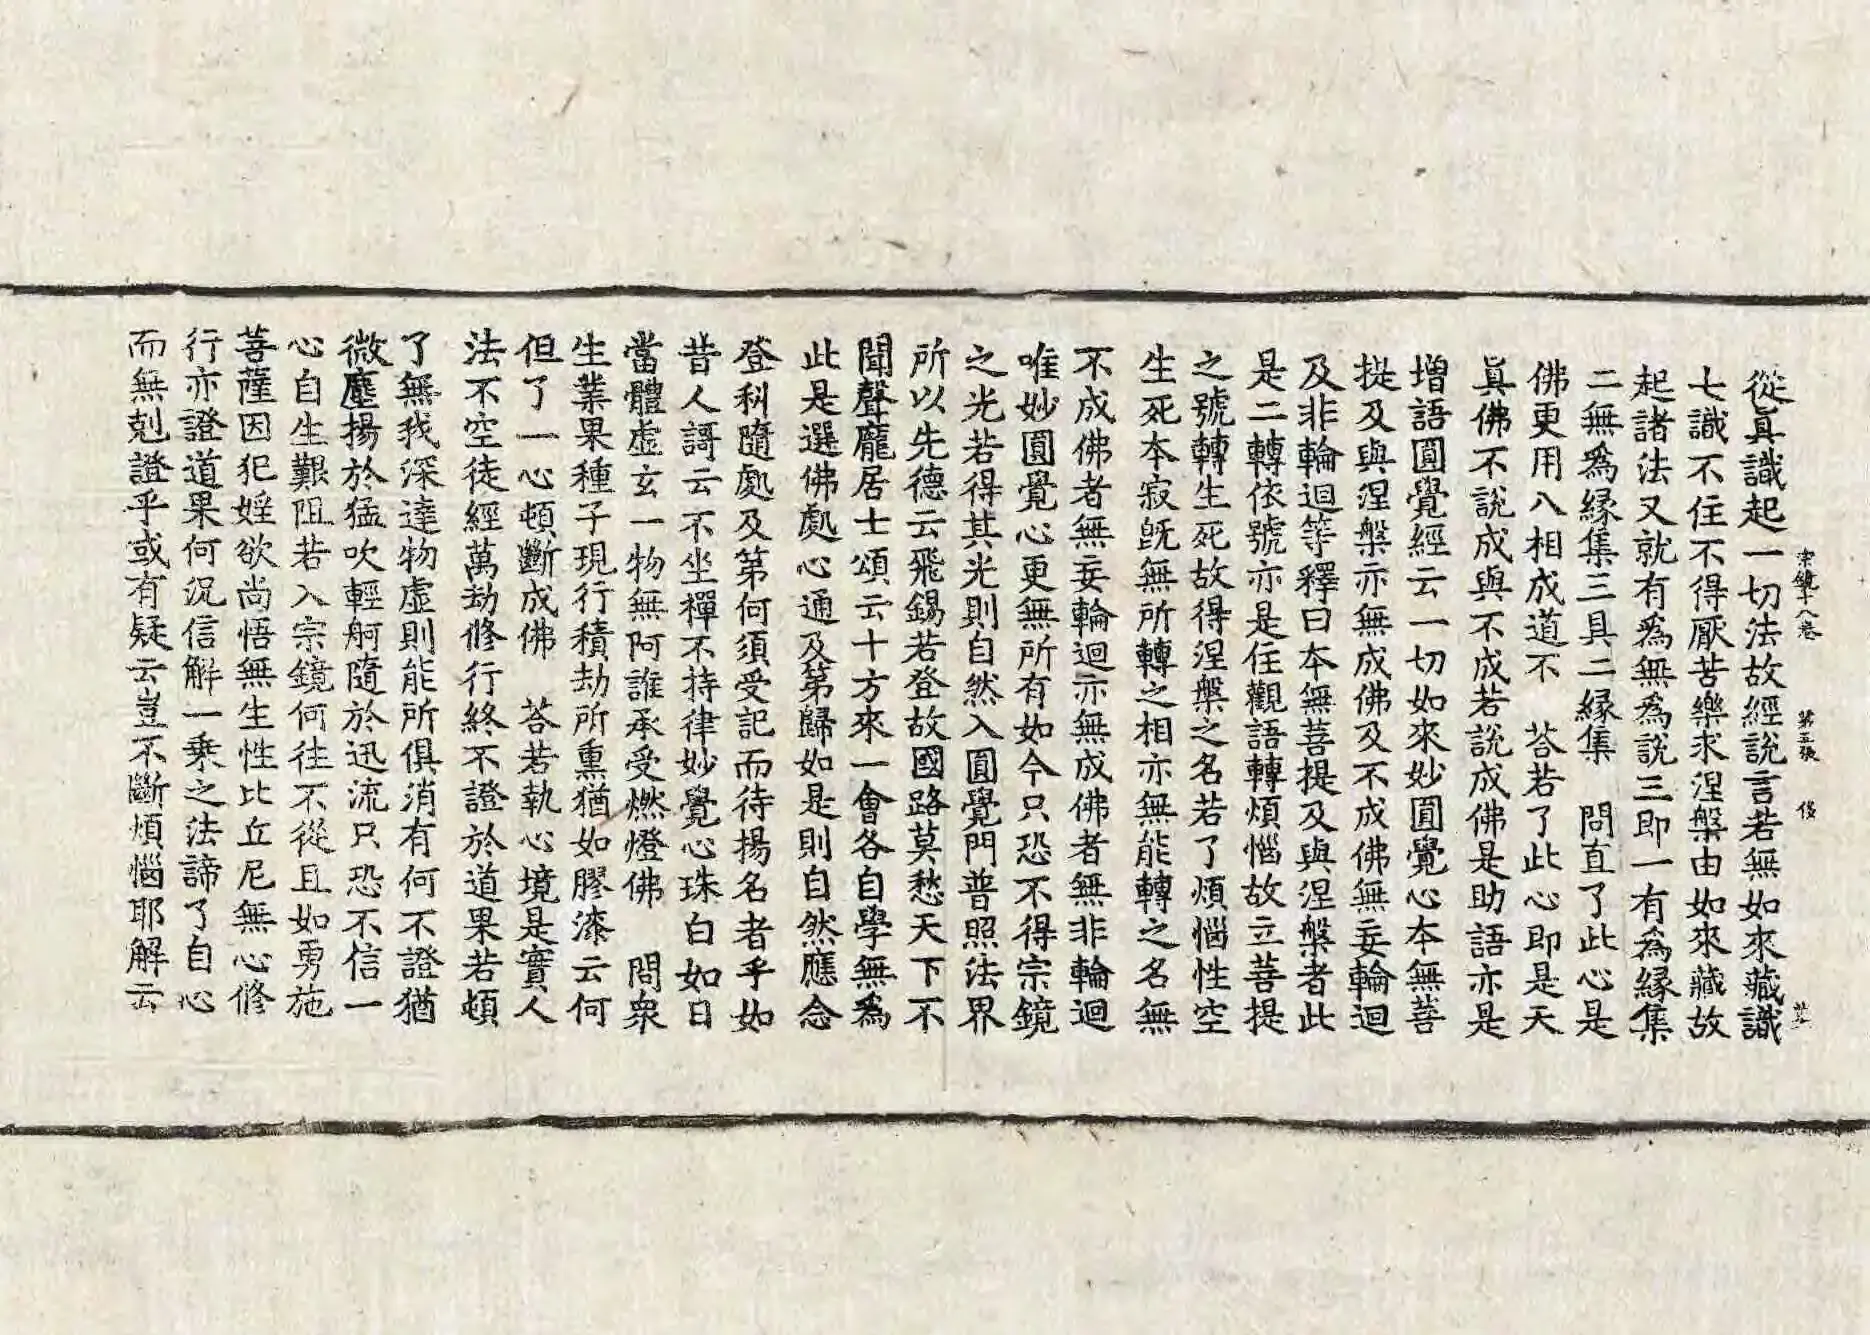 從眞識起一切法故經說言若無如來藏識
宗鏡十八卷 第五張
七識不住不得厭苦樂求涅槃由如來藏故
起諸法又就有爲無爲說三即一有爲緣集
二無爲緣集三具二緣集 問直了此心是
佛更用八相成道不 荅若了此心即是天
眞佛不說成與不成若說成佛是助語亦是
增語圓覺經云一切如來妙圓覺心本無菩
提及與涅槃亦無成佛及不成佛無妄輪迴
及非輪迴等釋曰本無菩提及與涅槃者此
是二轉依號亦是住觀語轉煩惱故立菩提
之號轉生死故得涅槃之名若了煩惱性空
生死本寂旣無所轉之相亦無能轉之名無
不成佛者無妄輪迴亦無成佛者無非輪迴
唯妙圓覺心更無所有如今只恐不得宗鏡
之光若得其光則自然入圓覺門普照法界
所以先德云飛錫若登故國路莫愁天下不
聞聲龐居士頌云十方來一會各自學無爲
此是選佛處心通及第歸如是則自然應念
登科隨處及第何須受記而待揚名者乎如
昔人謌云不坐禪不持律妙覺心珠白如日
當體虛玄一物無阿誰承受燃燈佛 問衆
生業果種子現行積劫所熏猶如膠漆云何
但了一心頓斷成佛 荅若執心境是實人
法不空徒經萬劫修行終不證於道果若頓
了無我深達物虛則能所俱消有何不證猶
微塵揚於猛吹輕舸隨於迅流只恐不信一
心自生艱阻若入宗鏡何往不從且如勇施
菩薩因犯婬欲尚悟無生性比丘尼無心修
行亦證道果何況信解一乘之法諦了自心
而無剋證乎或有疑云豈不斷煩惱耶解云